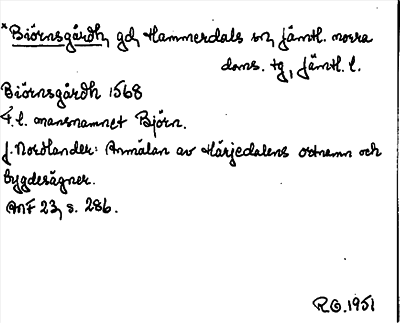 *Biörnsgårdh, gd, Hammerdals sn, Jämtl. norra
doms. tg, Jämtl. l.
Biörnsgårdh 1568
F.l. mansnamnet Björn.
J. Nordlander: Anmälan av Härjedalens ortnamn och
bygdesägner.
ANF 23, s. 286.
R.O. 1951